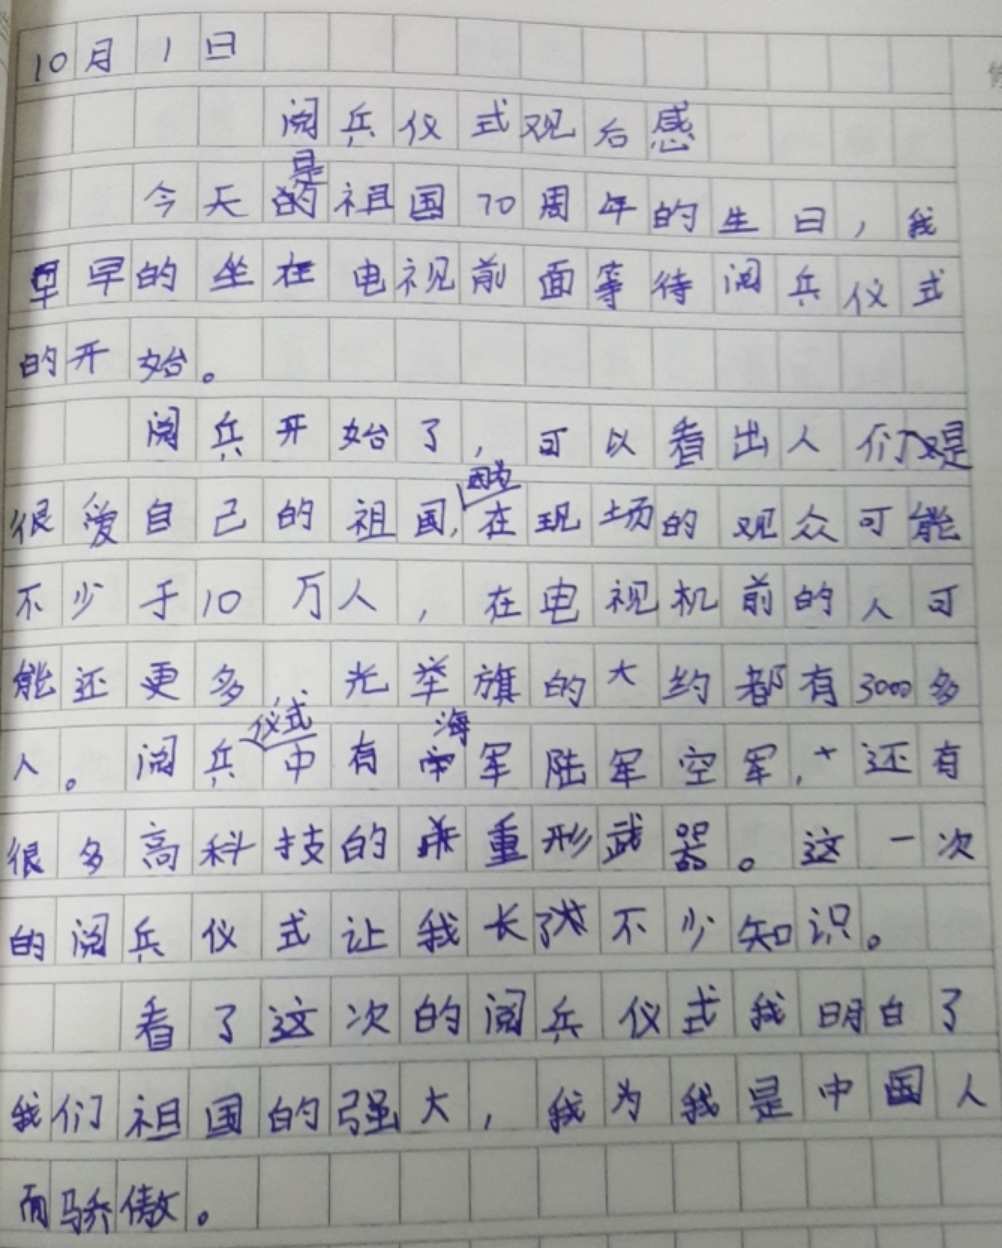 10月1日
阅兵仪式观后感
今天是祖国70周年的生日，我
早早的坐在电视前面等待阅兵仪式
的开始。
阅兵开始了，可以看出人们是
很爱自己的祖国，因为在现场的观众可能
不少于10万人，在电视机前的人可
能还更多 光举旗的大约都有3000多
人。阅兵仪式中有海军陆军空军，还有
很多高科技的重形武器。这一次
的阅兵仪式让我长不少知识。
看了这次的阅兵仪式我明白了
我们祖国的强大，我为我是中国人
而骄傲。